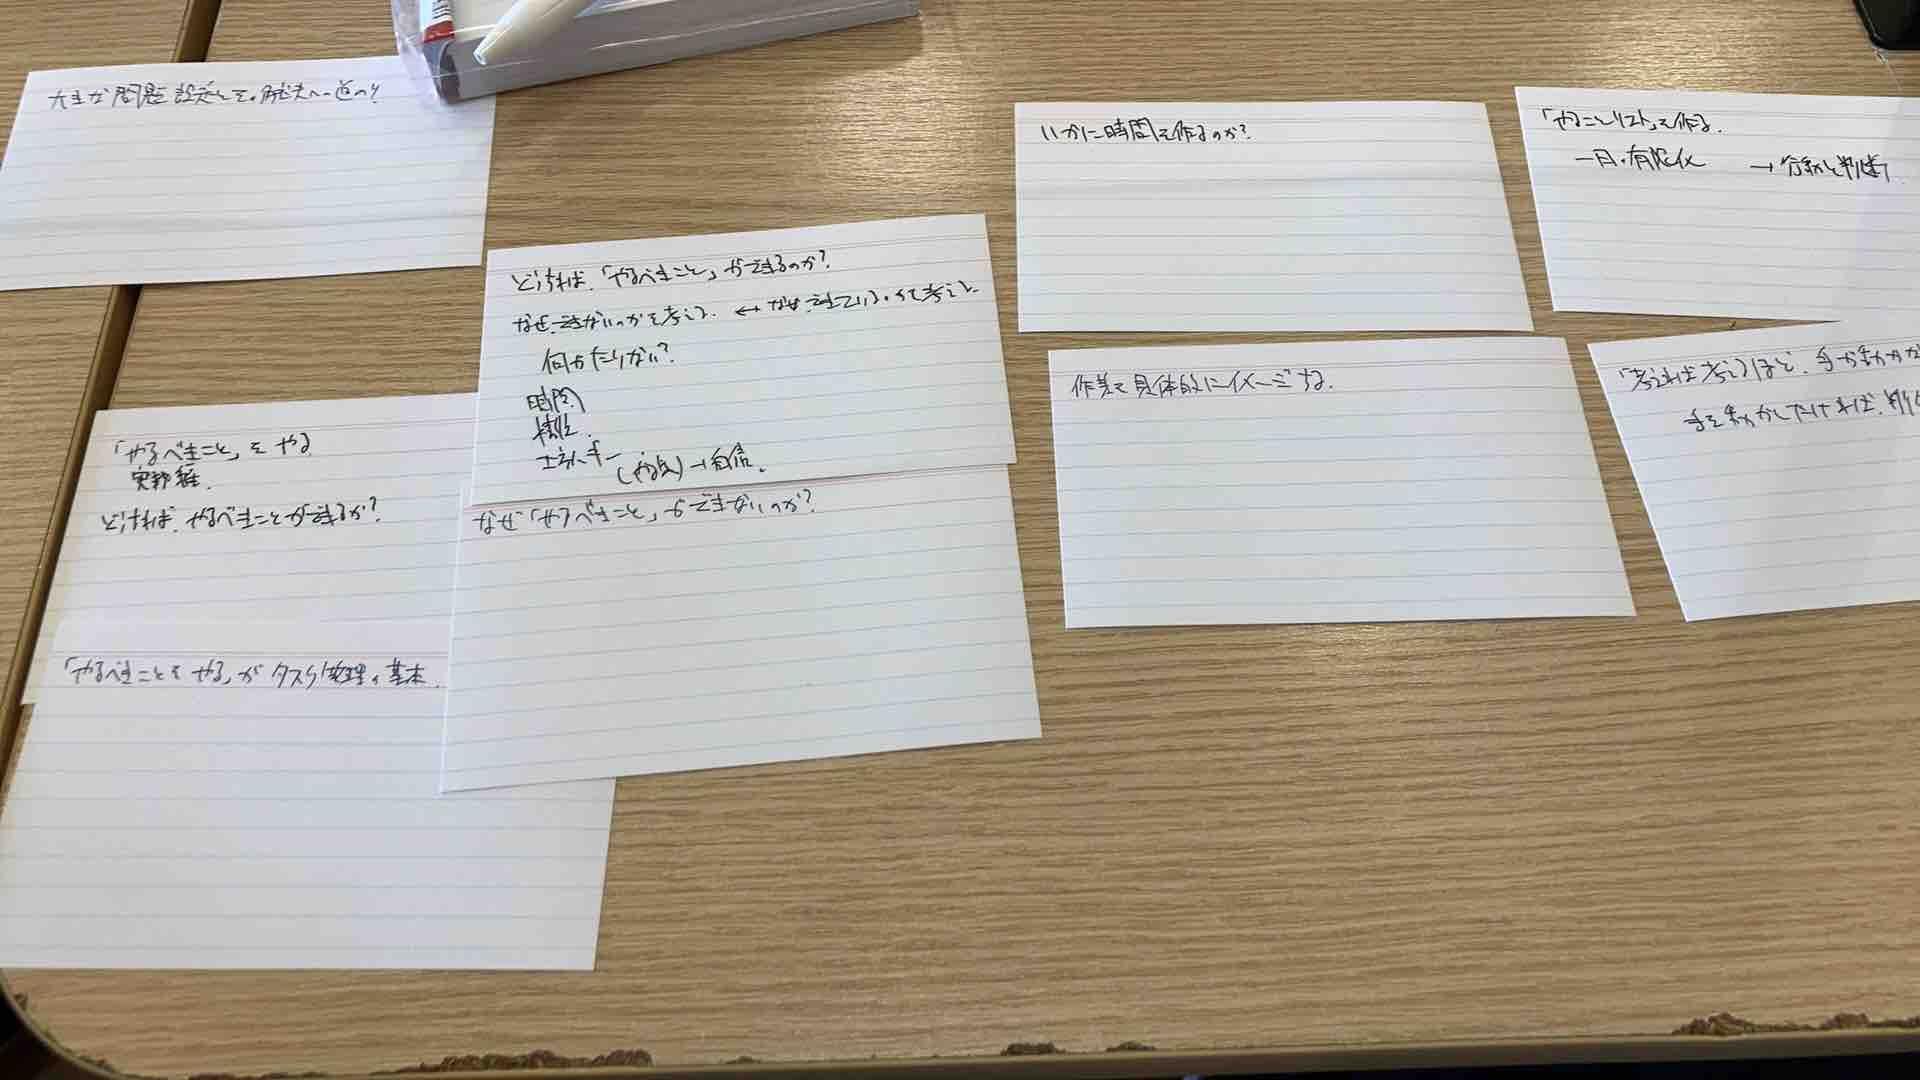 大きな問題設定とその解決への道のり
「やるべきこと」をやる
実は難
どうすれば、やるべきことができるか?
「やるべきことをやる」がタスク管理の基本.
どうすれば、「やるべきこと」ができるのか?
なぜ、できないのかを考える. ↔ なぜ、できているのかを考える.
何がたりない?
時間
情報.
エネルギー
(やる気)→自信.
なぜ「やるべきこと」ができないのか?
いかに時間を作るのか?
作業を具体的にイメージする.
「やることリスト」を作る.
一日の有限化 →行動と判断
「考えれば考えるほど、手が動かな
手を動かしたければ、